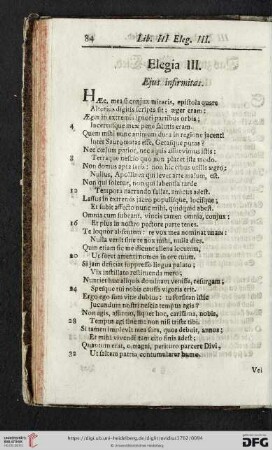 84 Lib. III Eleg. III.
Elegia III.
Ejus infirmitas.
HÆc mea si conjux miraris, epistola quare
Alterius digitis scripta sit: æger eram:
Æger in extremis ignoti partibus orbis;
4 Incertusque meæ pene salutis eram.
Quem mihi nunc animum dira in regione jacenti
Inter Sauromatas esse, Getasque putas?
Nec cœlum patior, nec aquis assuevimus istis:
8 Terraque nescio quo non placet ista modo.
Non domus apta satis: non hic cibus utilis ægro;
Nullus, Apollinea qui levet arte malum, est.
Non qui soletur, non qui labentia tarde
12 Tempora narrando fallat, amicus adest.
Lassus in extremis jaceo populisque, locisque;
Et subit affecto nunc mihi, quidquid abest.
Omnia cum subeant, vincis tamen omnia, conjux:
16 Et plus in nostro pectore parte tenes.
Te loquor absentem: te vox mea nominat unam:
Nulla venit sine te nox mihi, nulla dies.
Quin etiam sic me dicunt aliena locutum,
20 Ut foret amenti nomen in ore tuum.
Si jam deficiat suppresso lingua palato;
Vix instillato restituenda mero;
Nunciet huc aliquis dominam venisse, resurgam;
24 Spesque tui nobis causa vigoris erit.
Ergo ego sum vitæ dubius: tu forsitan istic
Jucundum nostri nescia tempus agis?
Non agis, affirmo, liquet hoc, carissima, nobis,
28 Tempus agi sine me non nisi triste tibi.
Si tamen implevit mea sors, quos debuit, annos;
Et mihi vivendi tam cito finis adest:
Quantum erat, o magni, perituro parcere Divi,
32 Ut saltem patria contumularer humo.
Vel
https://digi.ub.uni-heidelberg.de/diglit/ovidius1702/0094
© Universitätsbibliothek Heidelberg
UNIVERSITÄTS-BIBLIOTHEK HEIDELBERG
Gefördert durch die
DFG